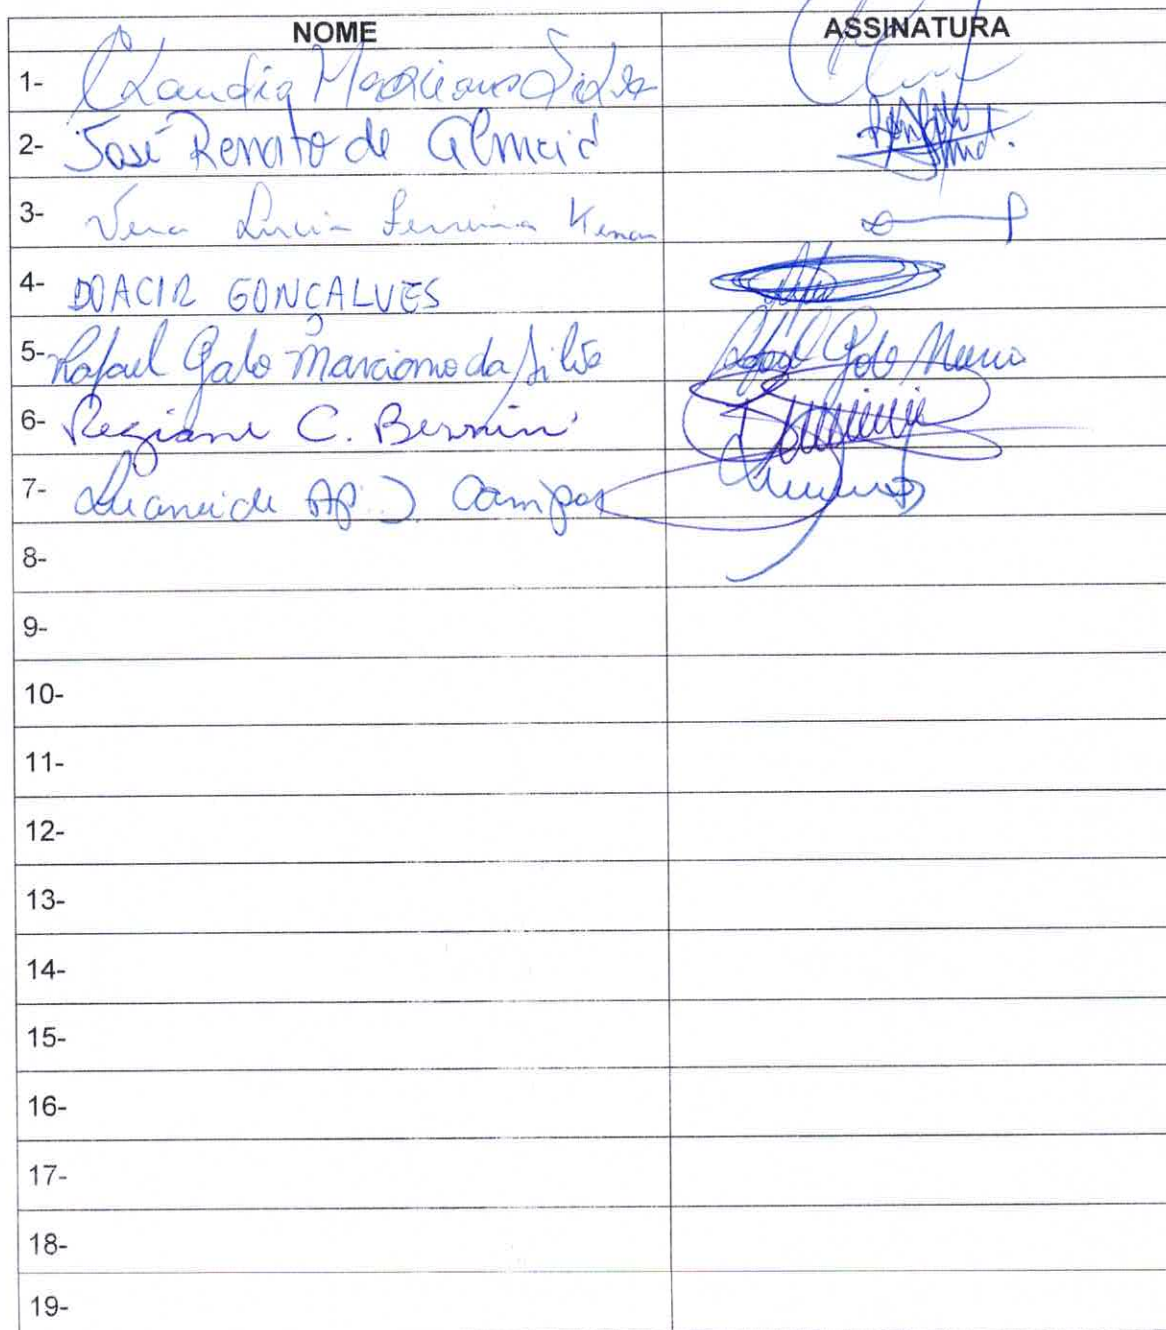 NOME ASSINATURA
1- Claudia Marciano Silva
2- José Renato de Almeid Renato
3- Vera Lucia Ferreira
4- DOACIR GONÇALVES
5- Rafael Galo Marciano da Silva Rafael Galo
6- Regiane C. Bernini
7- Ap. J Campos
8-
9-
10-
11-
12-
13-
14-
15-
16-
17-
18-
19-